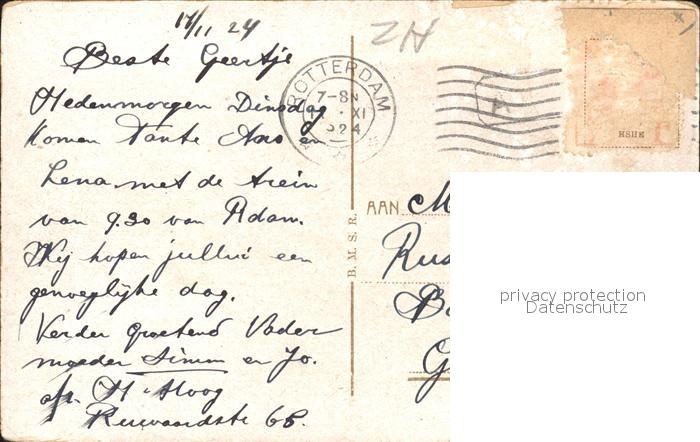 17/11 24
Beste Geertje
Hedenmorgen Dinsdag
komen Tante Ans en
Lena met de trein
van 9.30 van Rdam.
Wij hopen jullui een
genoeglijke dag.
Verder groetend Vader
moeder Simm en Jo.
afz. H. Hoog
66.
ZH
ROTTERDAM
7-8N
XI
1924
HSHK
B. M. S. R.
AAN
privacy protection
Datenschutz